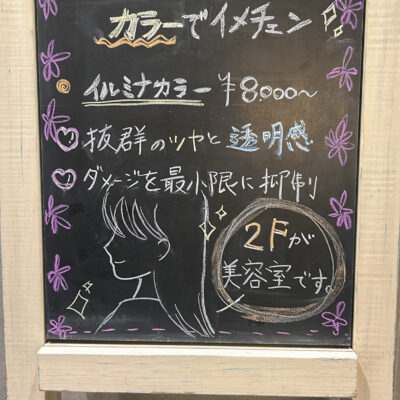 カラーでイメチェン
イルミナカラー ¥8.000〜
抜群のツヤと透明感
ダメージを最小限に抑制
2Fが
美容室です。